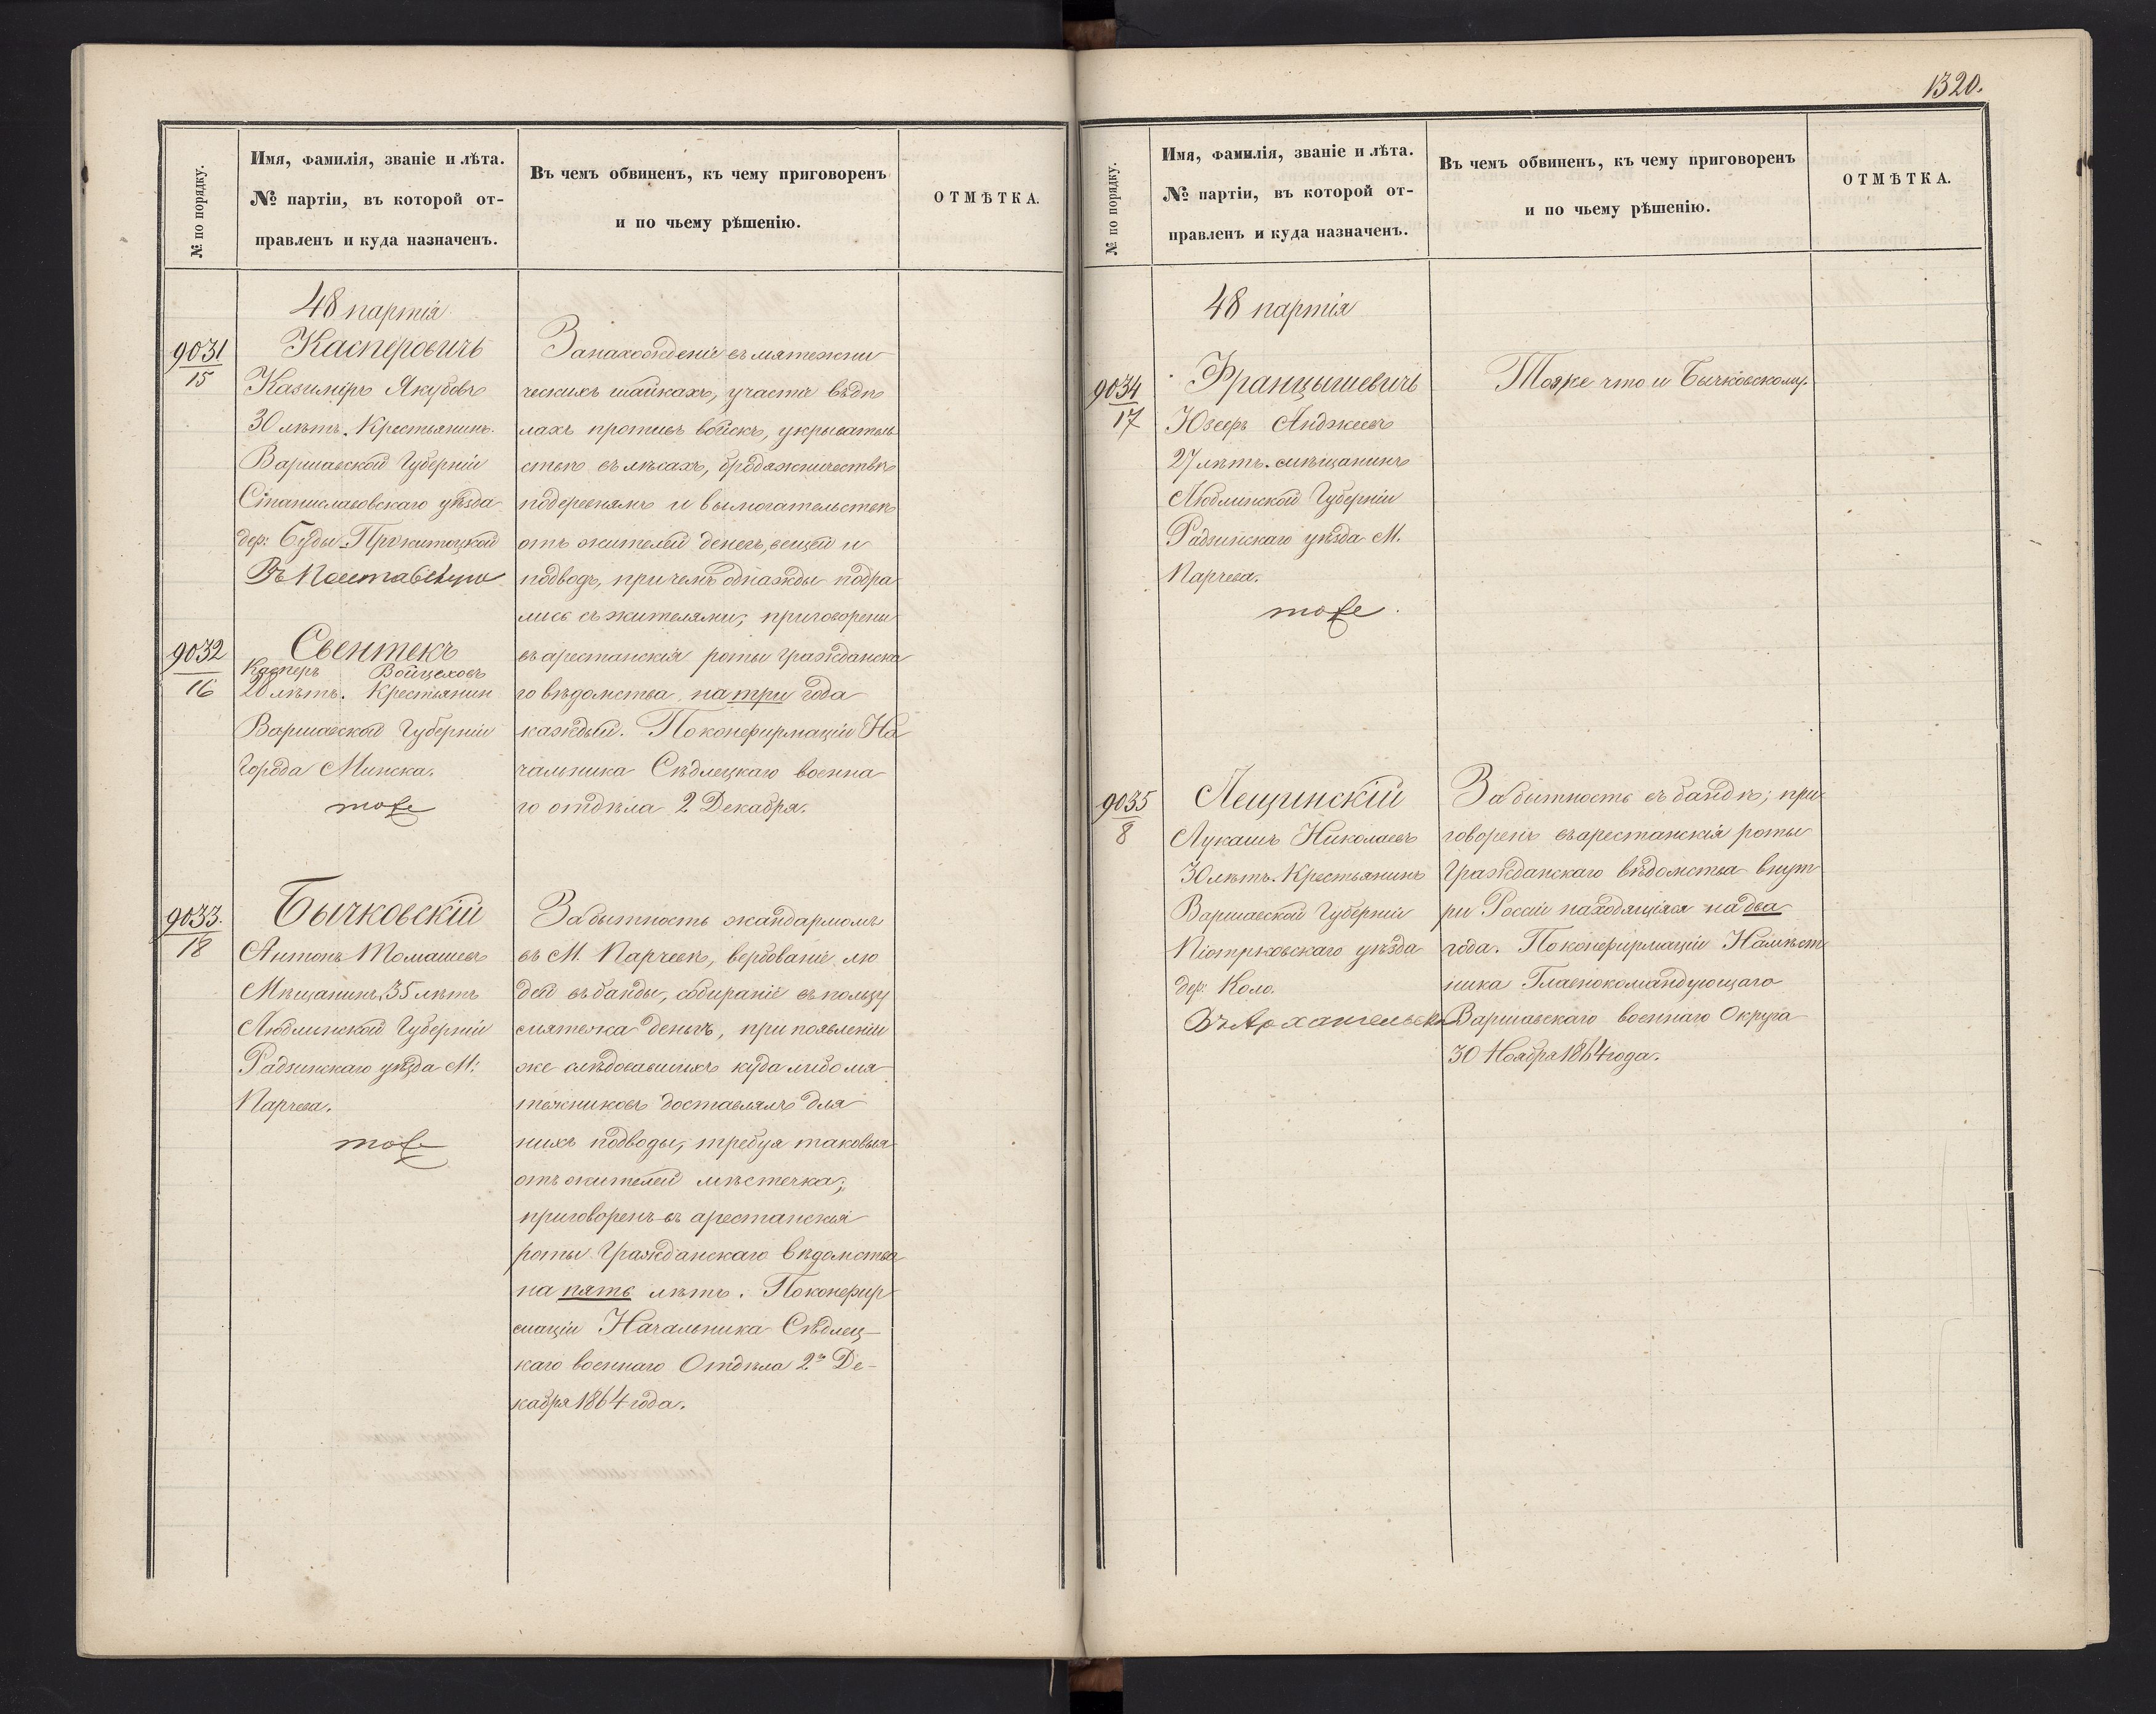 1320.
№ по порядку.
Имя, фамилія, званіе и лѣта.
№ партіи, въ которой от-
правленъ и куда назначенъ.
Въ чемъ обвиненъ, къ чему приговоренъ
и по чьему рѣшенію.
ОТМѢТКА.
48 партія
9031
15
Касперовичъ
Казиміръ Якубовъ
30 лѣтъ. Крестьянинъ.
Варшавской Губерніи
Станиславовскаго уѣзда
дер: Буды
За нахожденіе въ мятежни
ческихъ шайкахъ, участіе въ дѣ
лахъ противъ войскъ, укрыватель
ствѣ въ лѣсахъ, бродяжничествѣ
по деревнямъ и вымогательствѣ
отъ жителей денегъ, вещей и
подводъ, при чемъ однажды подра
лись съ жителями; приговорены
въ арестанскія роты гражданска
го вѣдомства на три года
каждый. По конфирмаціи На
чальника Сѣдлецкаго военна
го отдѣла 2 Декабря.
9032
16
Свентекъ
Касперъ Войцеховъ
20 лѣтъ. Крестьянин
Варшавской Губерніи
Города Минска.
тоже
9033.
18
Бычковскій
Антонъ Томашевъ
Мѣщанинъ, 35 лѣтъ
Люблинской Губерніи
Радзинскаго уѣзда М:
Парчева.
тоже
За бытность жандармомъ
въ М. Парчевѣ, вербованіе лю
дей въ банды, собираніе въ пользу
мятежа денегъ, при появленіи
же слѣдовавшихъ куда либо мя
тежниковъ доставлялъ для
нихъ подводы, требуя таковыя
отъ жителей мѣстечка;
приговоренъ въ арестанскія
роты Гражданскаго вѣдомства
на пять лѣтъ. По конфир
маціи Начальника Сѣдлец-
каго военнаго Отдѣла 2го Де-
кабря 1864 года.
№ по порядку.
Имя, фамилія, званіе и лѣта.
№ партіи, въ которой от-
правленъ и куда назначенъ.
Въ чемъ обвиненъ, къ чему приговоренъ
и по чьему рѣшенію.
ОТМѢТКА.
48 партія
9034
17
Францышевичъ
Юзефъ Анджеевъ
27 лѣтъ. мѣщанинъ
Люблинской Губерніи
Радзинскаго уѣзда М.
Парчева.
тоже.
Тоже что и Бычковскому.
9035
8
Лещинскій
Лукашъ Николаевъ
30 лѣтъ. Крестьянинъ
Варшавской Губерніи
Піотрковскаго уѣзда
дер: Коло.
Въ Архангельскъ
За бытность въ бандѣ; при
говоренъ въ арестанскія роты
Гражданскаго вѣдомства внут
ри Россіи находящіяся на два
года. По конфирмаціи Намѣст
ника Главнокомандующаго
Варшавскаго военнаго Округа
30 Ноября 1864 года.